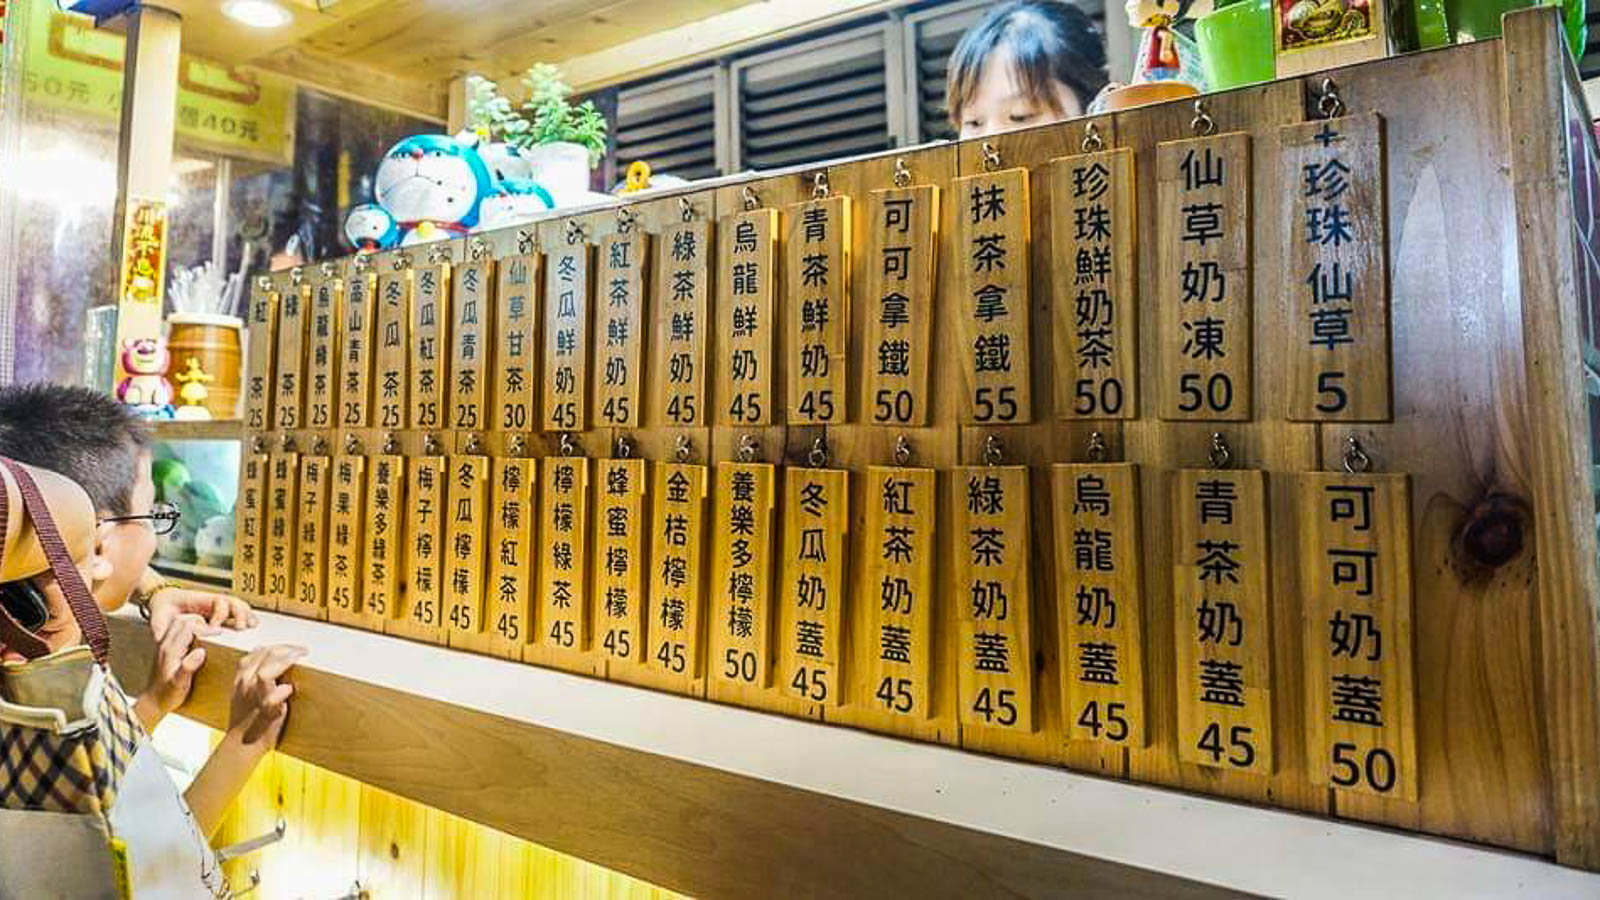 50元
個40元
紅茶25
綠茶25
烏龍綠茶25
高山青茶25
冬瓜茶25
冬瓜紅茶25
冬瓜青茶25
仙草甘茶30
冬瓜鮮奶45
紅茶鮮奶45
綠茶鮮奶45
烏龍鮮奶45
青茶鮮奶45
可可拿鐵50
抹茶拿鐵55
珍珠鮮奶茶50
仙草奶凍50
+珍珠仙草5
蜂蜜紅茶30
蜂蜜綠茶30
梅子綠茶30
梅果綠茶45
養樂多綠茶45
梅子檸檬45
冬瓜檸檬45
檸檬紅茶45
檸檬綠茶45
蜂蜜檸檬45
金桔檸檬45
養樂多檸檬50
冬瓜奶蓋45
紅茶奶蓋45
綠茶奶蓋45
烏龍奶蓋45
青茶奶蓋45
可可奶蓋50